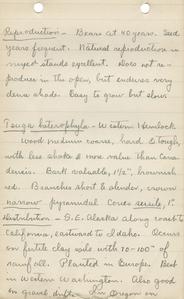 Reproduction - Bears at 40 years. Seed
years frequent. Natural reproduction in
mixed stands excellent. Does not re-
produce in the open, but endures very
dense shade. Easy to grow but slow.
Tsuga heterophylla - Western Hemlock
Wood medium coarse, hard & tough,
with less shake & more value than Cana-
densis. Bark valuable, 1½", brownish
red. Branches short & slender, crown
narrow pyramidal. Cones sessile, 1"
Distribution - S.E. Alaska along coast to
California, eastward to Idaho. Occurs
on fertile clay soils with 70-100" of
rainfall. Planted in Europe. Best
in Western Washington. Also good
on gravel drift. In Oregon on